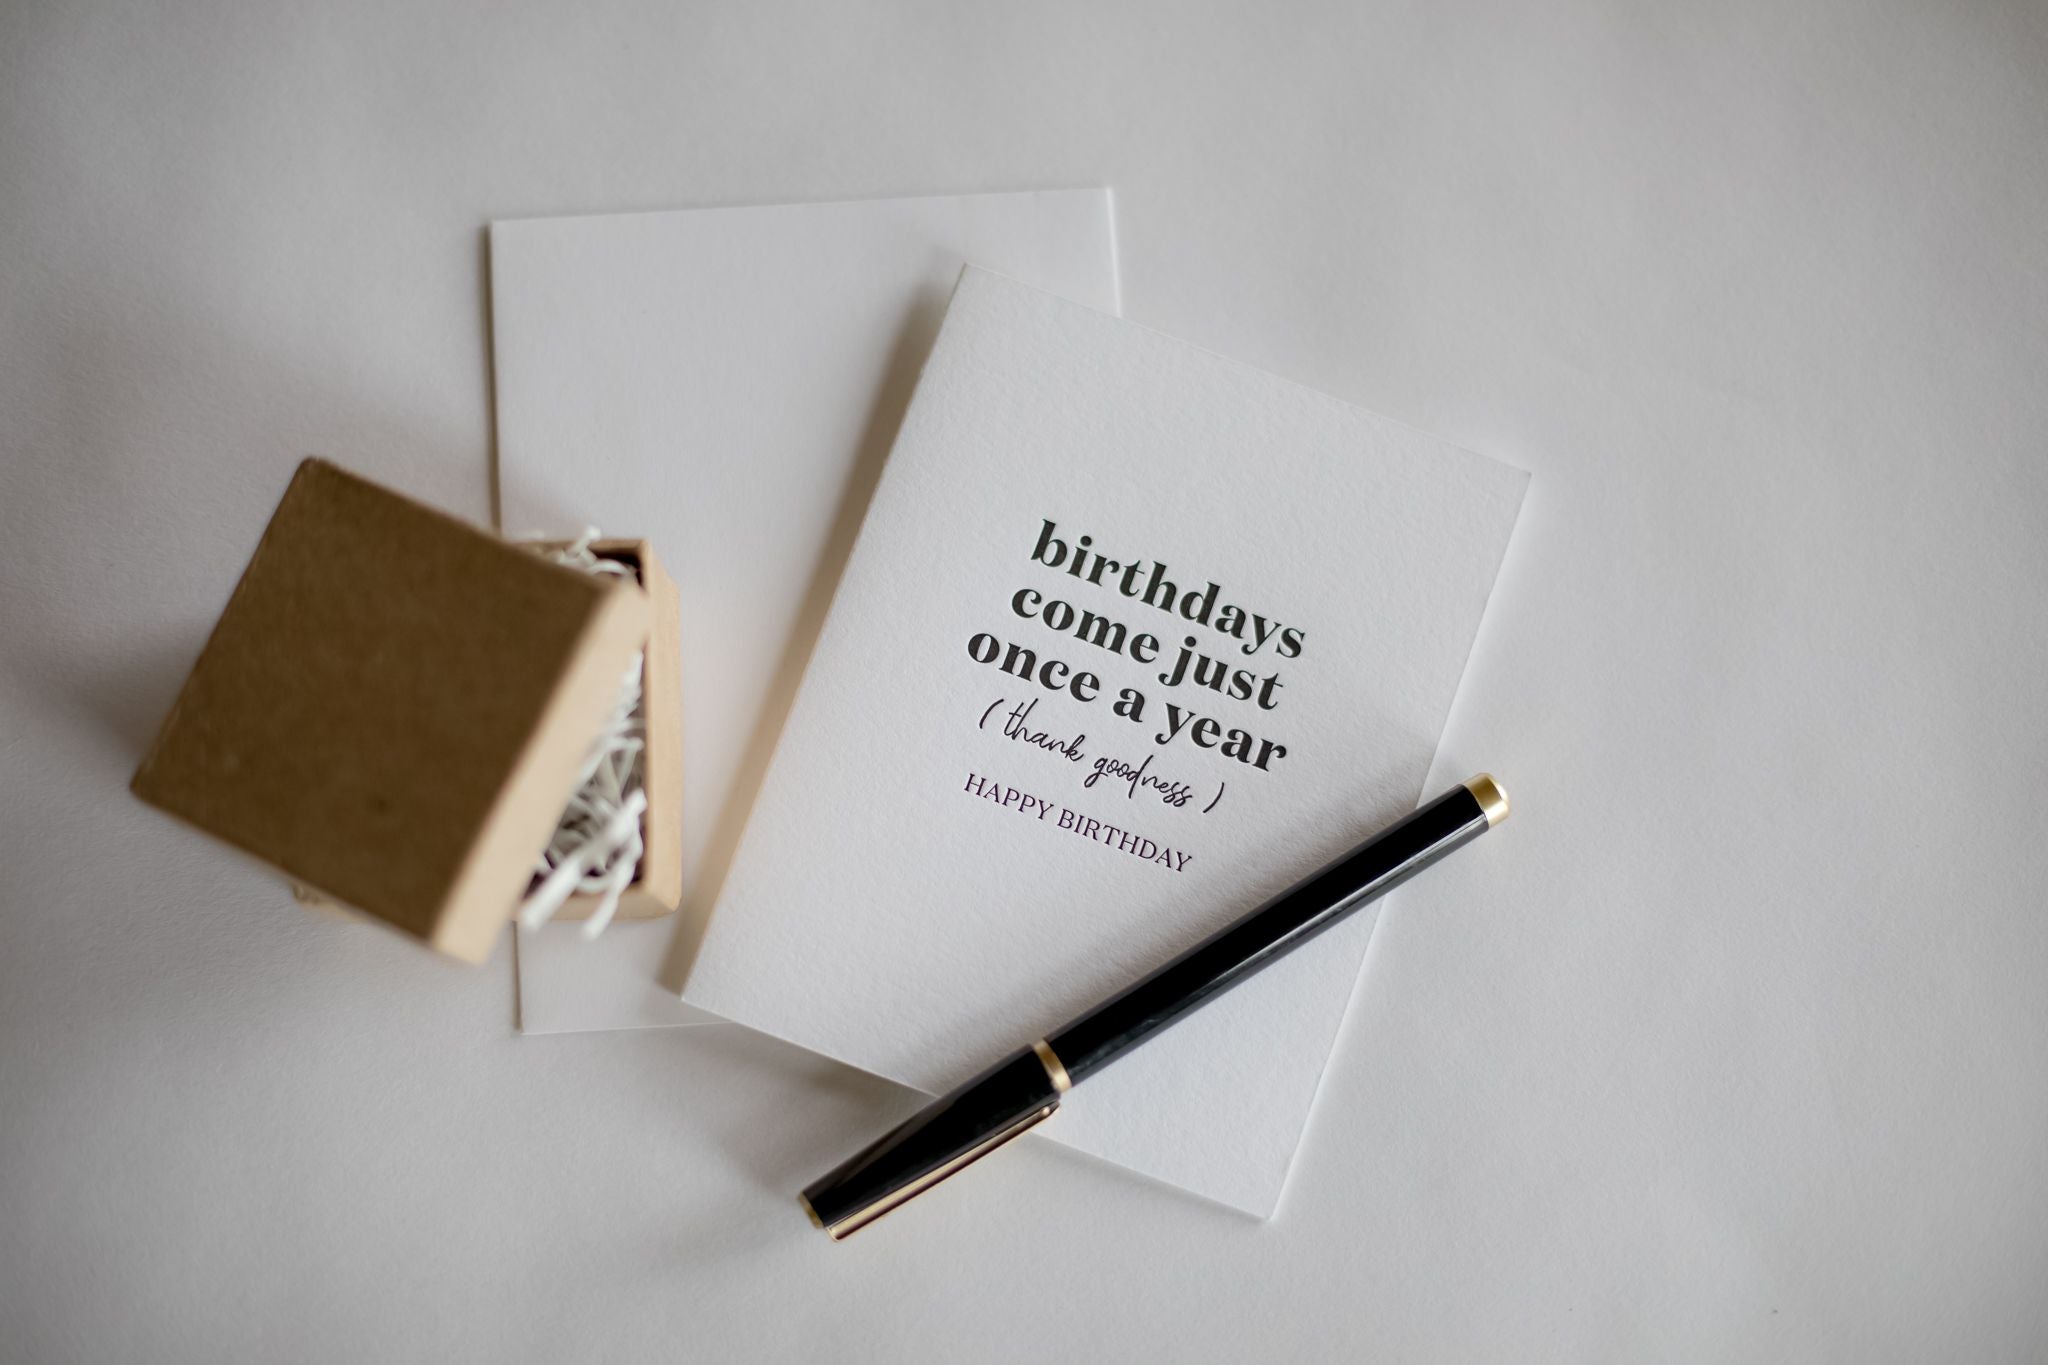 birthdays
come just
once a year
(thank goodness)
HAPPY BIRTHDAY